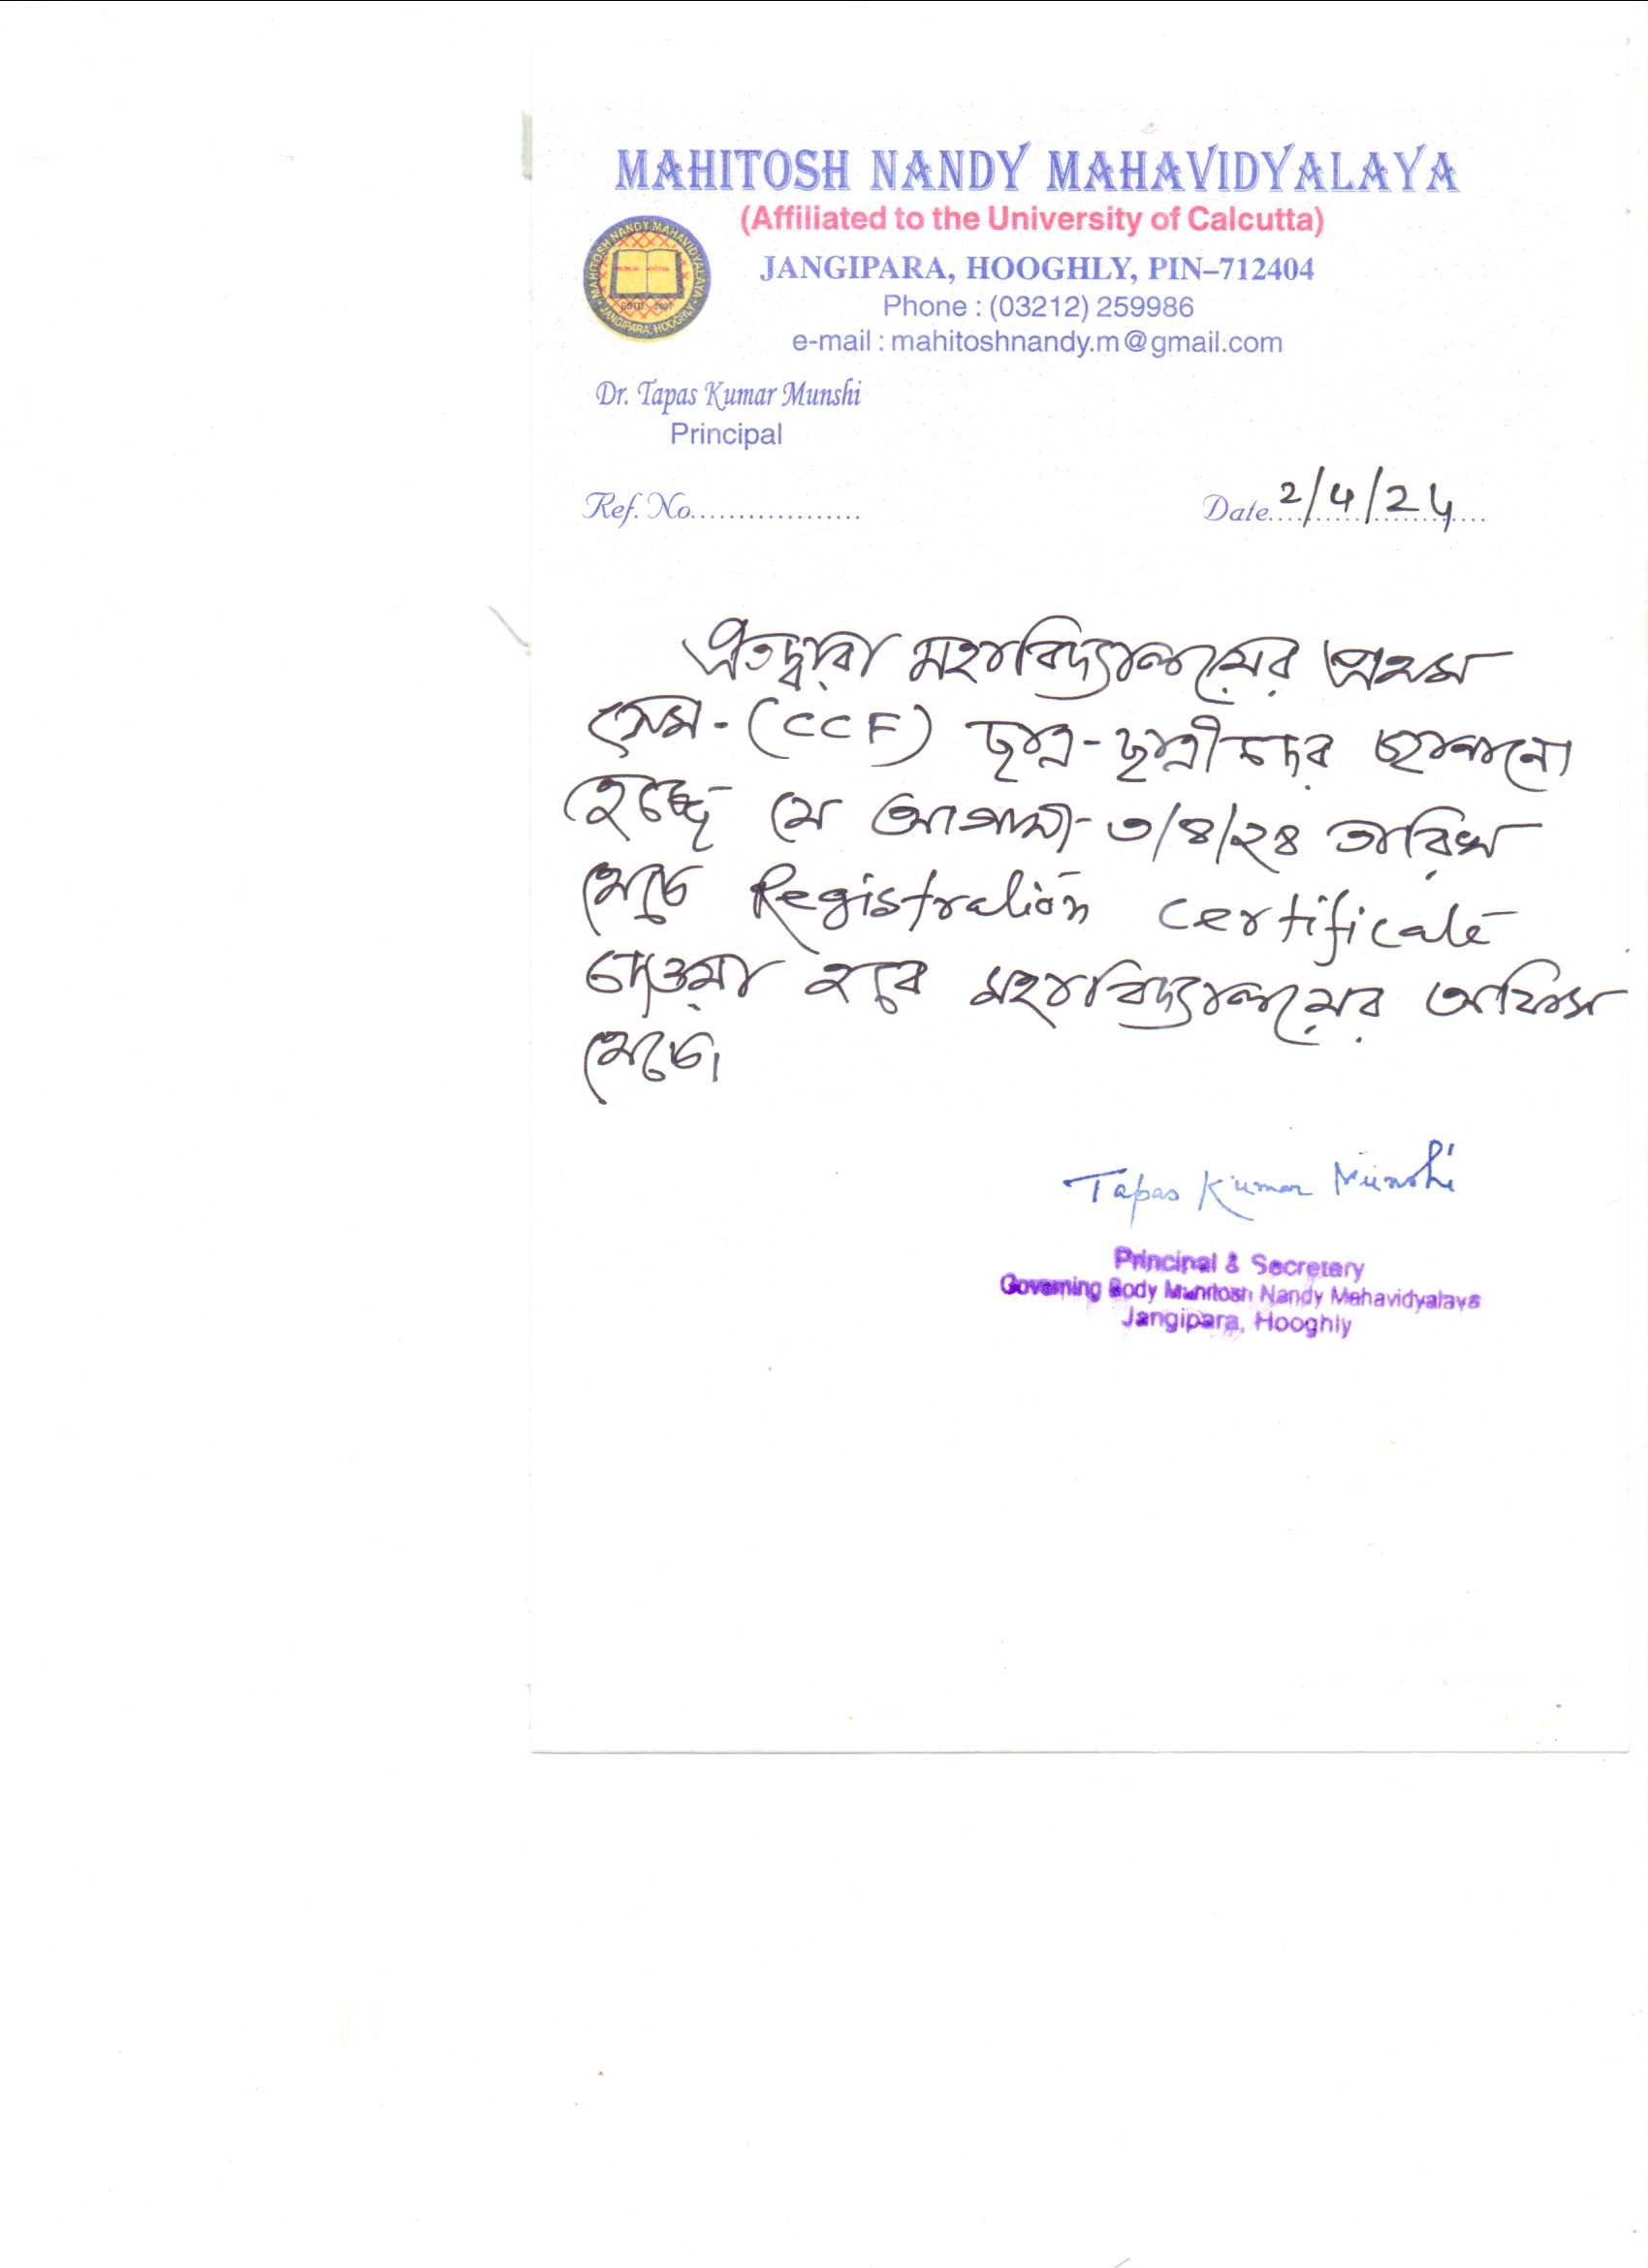 MAHITOSH NANDY MAHAVIDYALAYA
(Affiliated to the University of Calcutta)
JANGIPARA, HOOGHLY, PIN–712404
Phone : (03212) 259986
e-mail : mahitoshnandy.m@gmail.com
MAHITOSH NANDY MAHAVIDYALAYA
ESTD. 2007
JANGIPARA, HOOGHLY
Dr. Tapas Kumar Munshi
Principal
Ref. No.................. Date 2/4/24
এতদ্বারা মহাবিদ্যালয়ের প্রথম
সেম-(CCF) ছাত্র-ছাত্রীদের জানানো
হচ্ছে যে আগামী ৩/৪/২৪ তারিখ
থেকে Registration certificate
দেওয়া হবে মহাবিদ্যালয়ের অফিস
থেকে।
Tapas Kumar Munshi
Principal & Secretary
Governing Body Nandy Mahavidyalaya
Jangipara, Hooghly